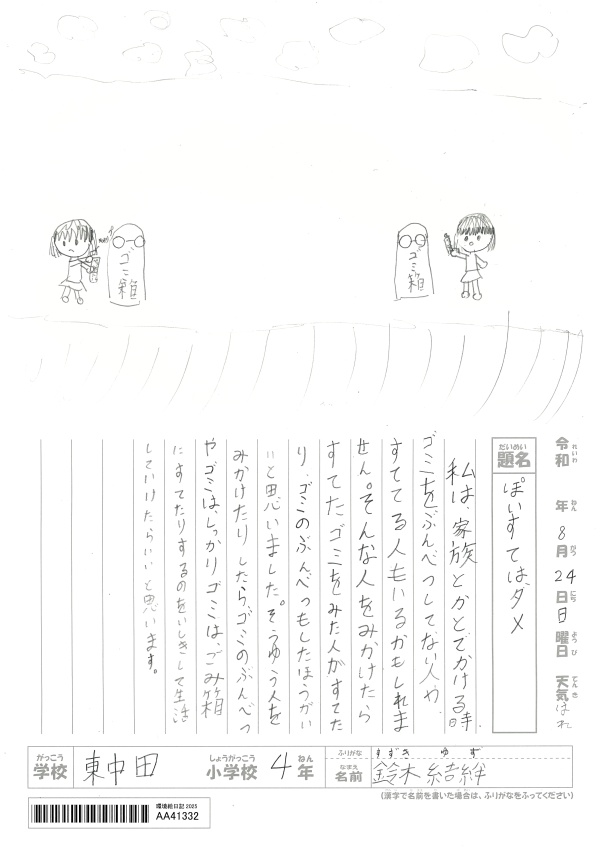 ゴミ箱
ゴミ箱
令和 年 8月 24日 日曜日 天気 はれ
れいわ ねん がつ にち ようび てんき
だいめい
題名
ぽいすては、ダメ
私は、家族とかとでかける時、
ゴミをぶんべつしてない人や、
すててる人もいるかもしれま
せん。そんな人をみかけたら
すてたゴミをみた人がすてた
り、ゴミのぶんべつもしたほうがい
いと思いました。そうゆう人を
みかけたりしたら、ゴミのぶんべつ
やゴミはしっかりゴミは、ごみ箱
にすてたりするのをいしきして生活
していけたらいいと思います。
がっこう しょうがっこう ねん
学校 東中田 小学校 4年
ふりがな すずき ゆず
なまえ
名前 鈴木 結絆
(漢字で名前を書いた場合は、ふりがなをふってください)
環境絵日記2025
AA41332